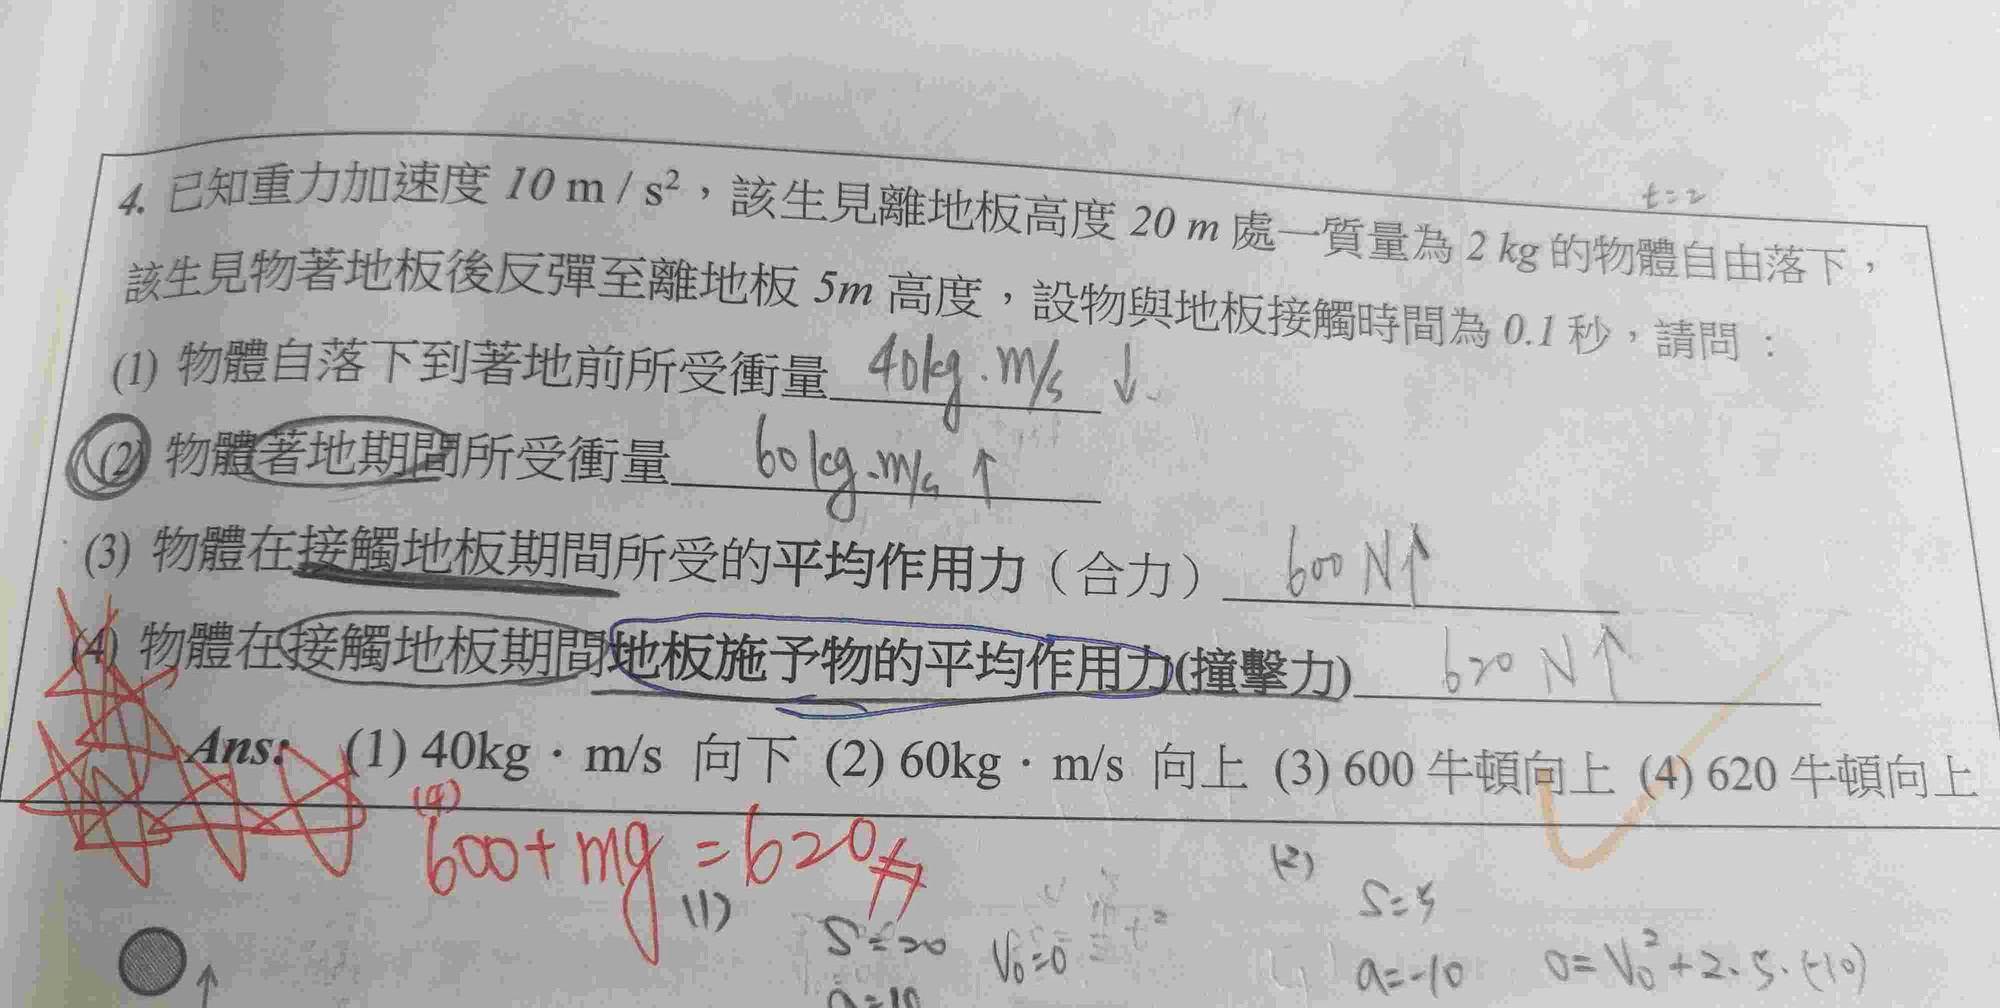 t=2
4. 已知重力加速度 10 m / s²，該生見離地板高度 20 m 處一質量為 2 kg 的物體自由落下，
該生見物著地板後反彈至離地板 5m 高度，設物與地板接觸時間為 0.1 秒，請問：
(1) 物體自落下到著地前所受衝量 40kg.m/s ↓
(2) 物體著地期間所受衝量 60kg.m/s ↑
(3) 物體在接觸地板期間所受的平均作用力（合力） 600 N↑
(4) 物體在接觸地板期間地板施予物的平均作用力(撞擊力) 620 N↑
Ans: (1) 40kg · m/s 向下 (2) 60kg · m/s 向上 (3) 600 牛頓向上 (4) 620 牛頓向上
(4)
600+mg=620
(1)
S=20
V₀=0
a=10
(2)
S=5
a=-10
0=V₀²+2.5.(-10)
↑